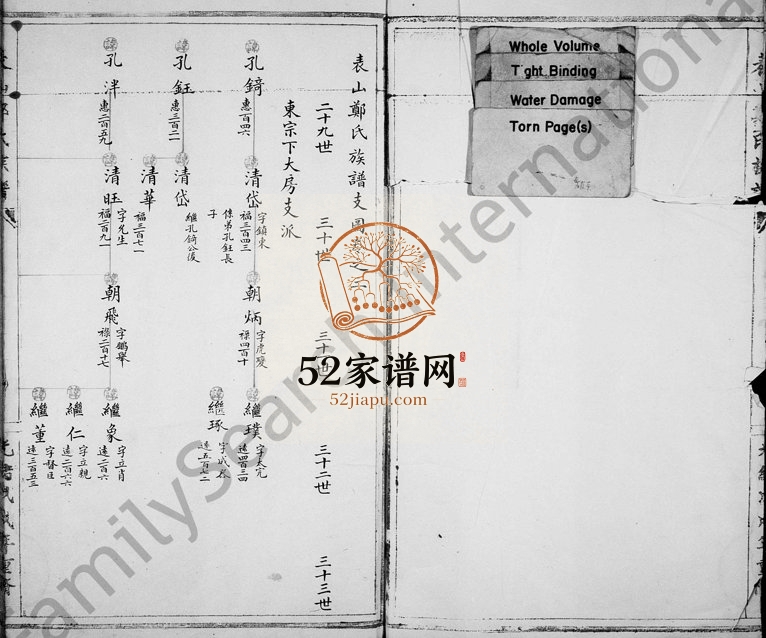 表山鄭氏族譜支圖
二十九世
三十世
三十一世
三十二世
三十三世
東宗下大房支派
孔錡
惠百四六
清岱
字鎮東
福三百四三
係弟孔鈺長
子
朝炳
字虎變
祿四百十
繼璞
字太完
遠四百三四
繼琢
字成器
遠五百七二
孔鈺
惠三百二
清岱
繼孔錡公後
清華
福三百七一
孔泮
惠二百五九
清旺
字允生
福二百九一
朝飛
字鵬舉
祿二百十七
繼象
字立肖
遠二百六
繼仁
字立親
遠二百六六
繼董
遠三百五三
Whole Volume
Tight Binding
Water Damage
Torn Page(s)
52家谱网
52jiapu.com
FamilySearch International